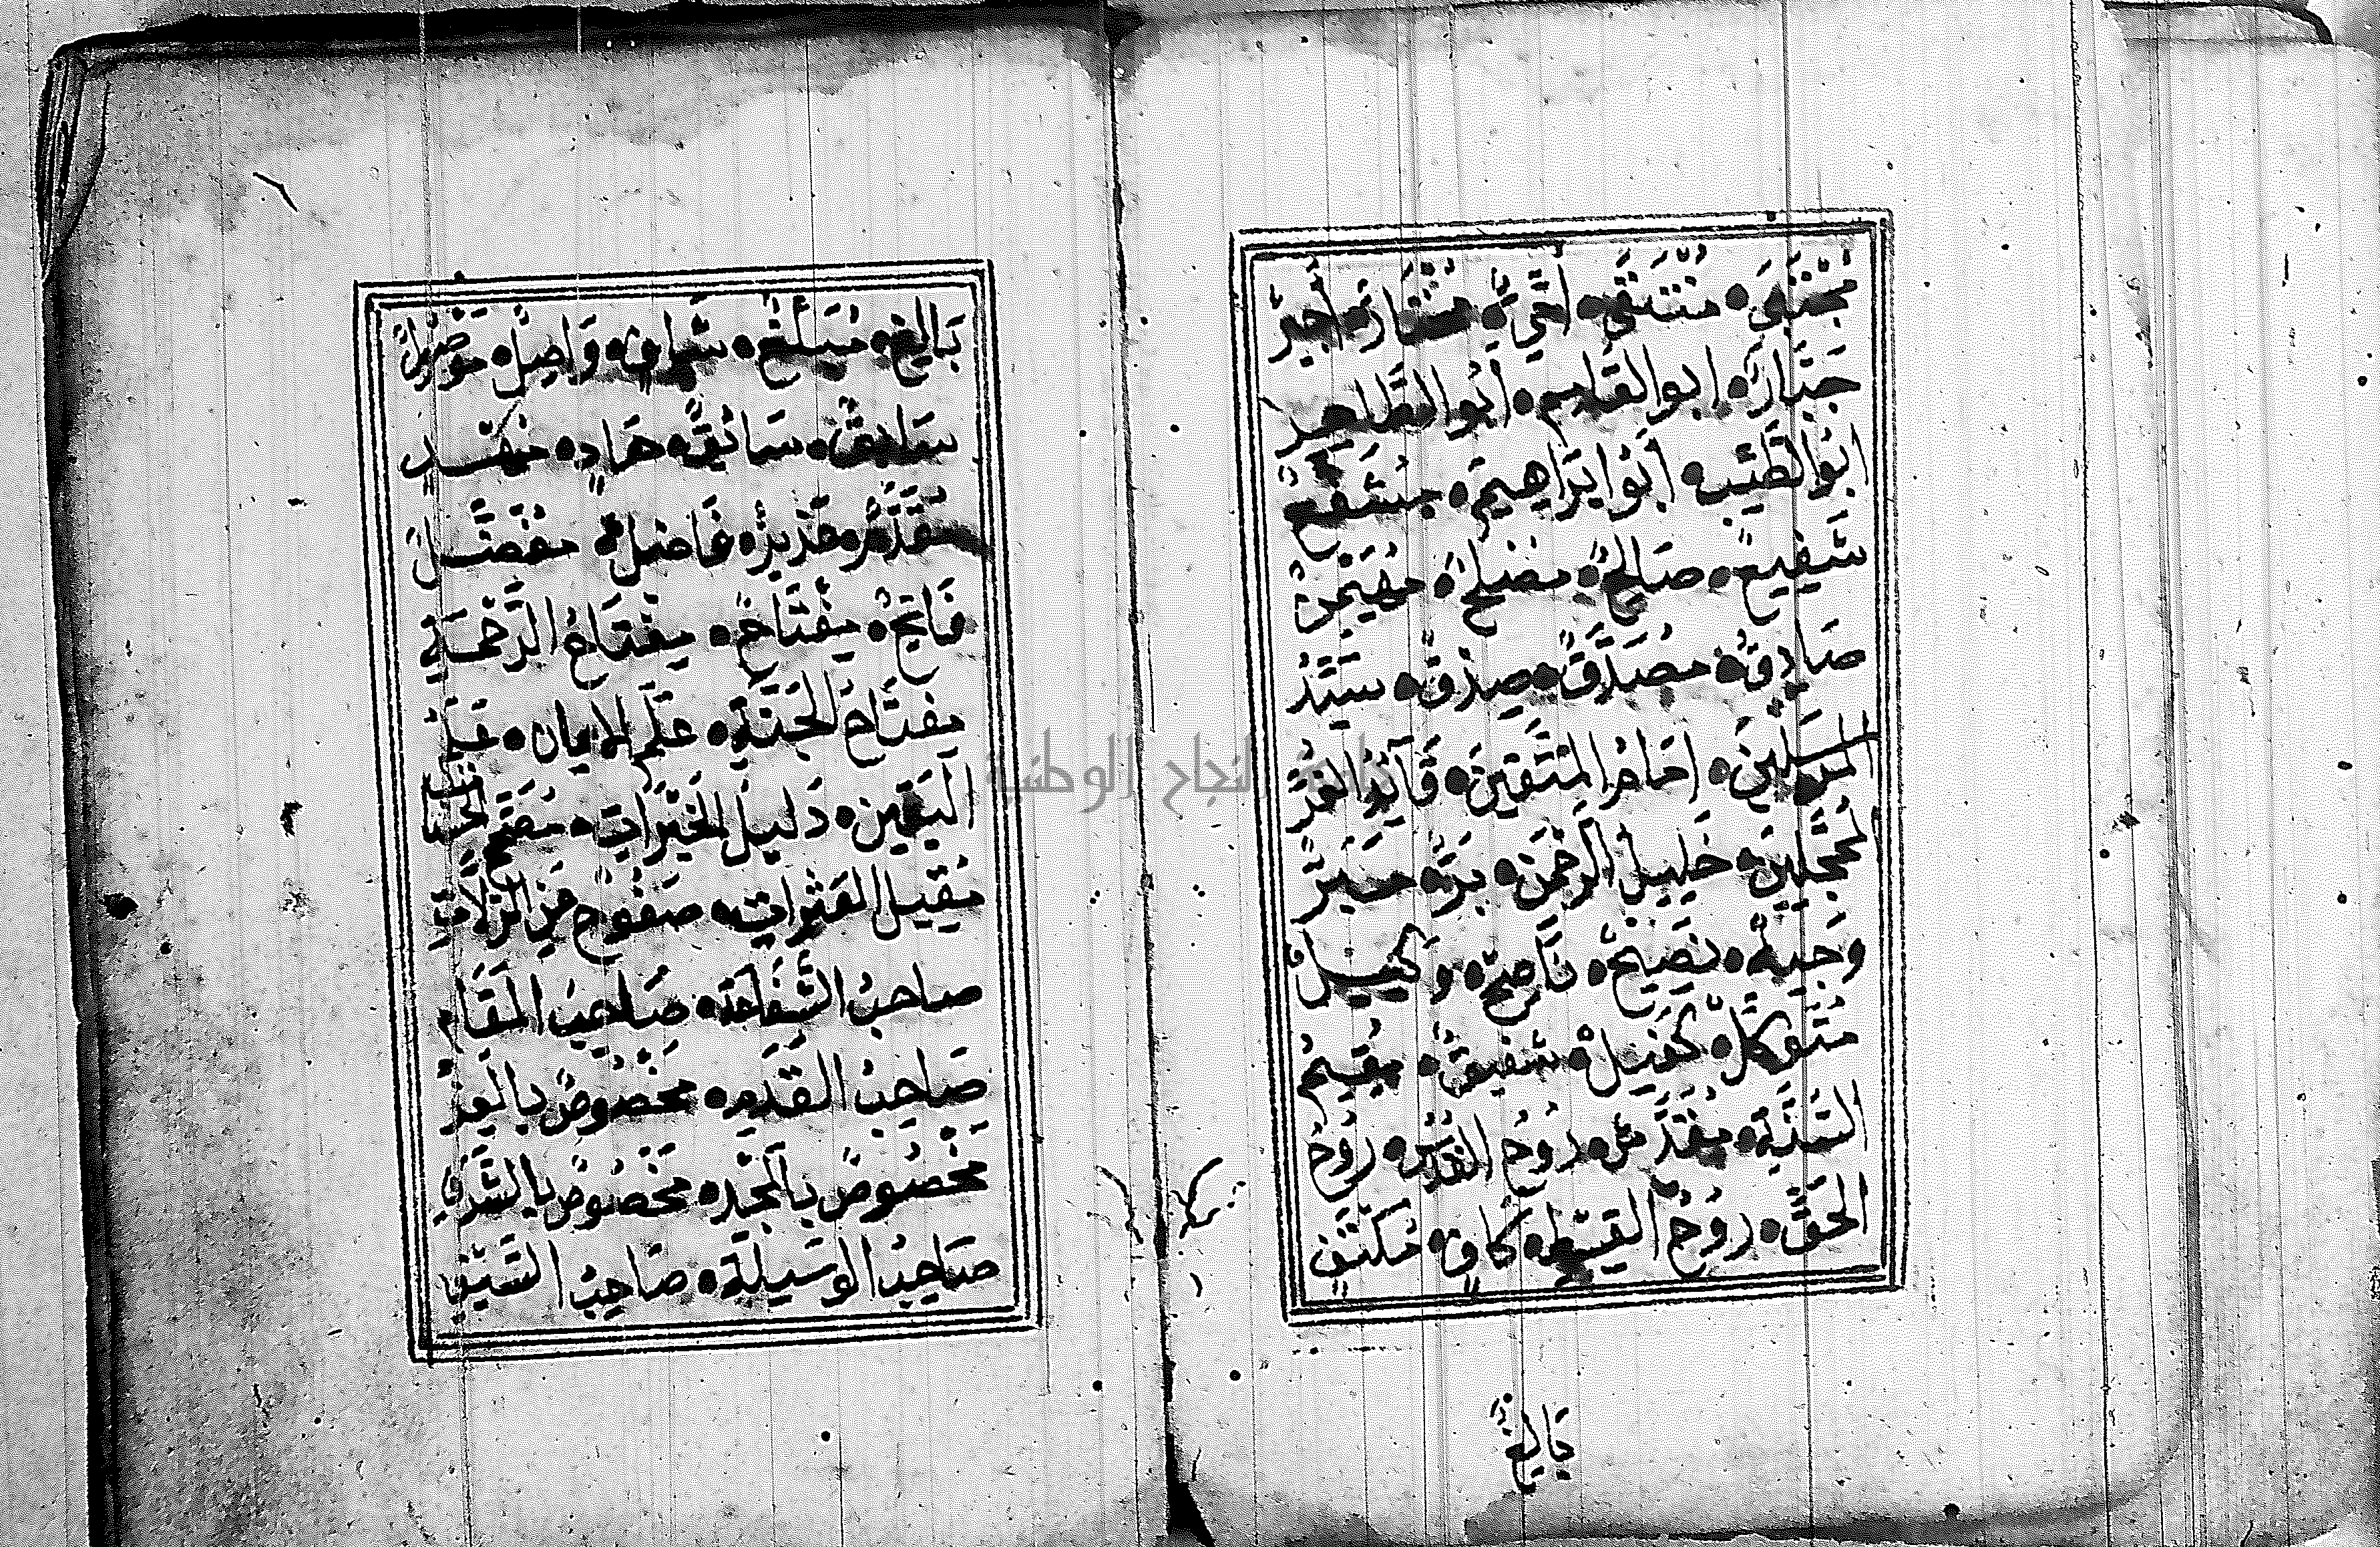 مُجْتَبَى ۰ مُنْتَقَى ۰ أُمِّيٌّ ۰ مُخْتَارٌ ۰ أَجِيرٌ
جَبَّارٌ ۰ ابو القَاسِم ۰ أَبُو الطَّاهِر
ابُو الطَّيِّب ۰ ابُو ابرَاهِيمَ ۰ مُشَفَّعٌ
شَفِيعٌ ۰ صَالِحٌ ۰ مُصْلِحٌ ۰ مُهَيْمِنٌ
صَادِقٌ ۰ مُصَدَّقٌ ۰ صِدْقٌ ۰ سَيِّدُ
المُرْسَلِينَ ۰ اِمَامُ المُتَّقِينَ ۰ قَآئِدُ الغُرِّ
المُحَجَّلِينَ ۰ خَلِيلُ الرَّحْمٰنِ ۰ بَرٌّ ۰ مَبَرٌّ
وَجِيهٌ ۰ نَصِيحٌ ۰ نَاصِحٌ ۰ وَكِيلٌ
مُتَوَكِّلٌ ۰ كَفِيلٌ ۰ شَفِيقٌ ۰ مُقِيمُ
السُّنَّةِ ۰ مُقَدَّسٌ ۰ رُوحُ القُدُسِ ۰ رُوحُ
الحَقِّ ۰ رُوحُ القِسْطِ ۰ كَافٍ ۰ مُكْتَفٍ
بَالِغٌ
بَالِغٌ ۰ مُبَلِّغٌ ۰ شَافٍ ۰ وَاصِلٌ ۰ مَوْصُولٌ
سَابِقٌ ۰ سَائِقٌ ۰ هَادٍ ۰ مُهْدٍ
مُقَدَّمٌ ۰ عَزِيزٌ ۰ فَاضِلٌ ۰ مُفَضَّلٌ
فَاتِحٌ ۰ مِفْتَاحٌ ۰ مِفْتَاحُ الرَّحْمَةِ
مِفْتَاحُ الجَنَّةِ ۰ عَلَمُ الايمان ۰ عَلَمُ
اليَقِينِ ۰ دَلِيلُ الخَيْرَاتِ ۰ مُصَحِّحُ الحَسَنَاتِ
مُقِيلُ العَثَرَاتِ ۰ صَفُوحٌ عَنِ الزَّلَّاتِ
صَاحِبُ الشَّفَاعَةِ ۰ صَاحِبُ المَقَامِ
صَاحِبُ القَدَمِ ۰ مَخْصُوصٌ بِالعِزِّ
مَخْصُوصٌ بِالمَجْدِ ۰ مَخْصُوصٌ بِالشَّرَفِ
صَاحِبُ الوَسِيلَةِ ۰ صَاحِبُ السَّيْفِ
جامعة النجاح الوطنية